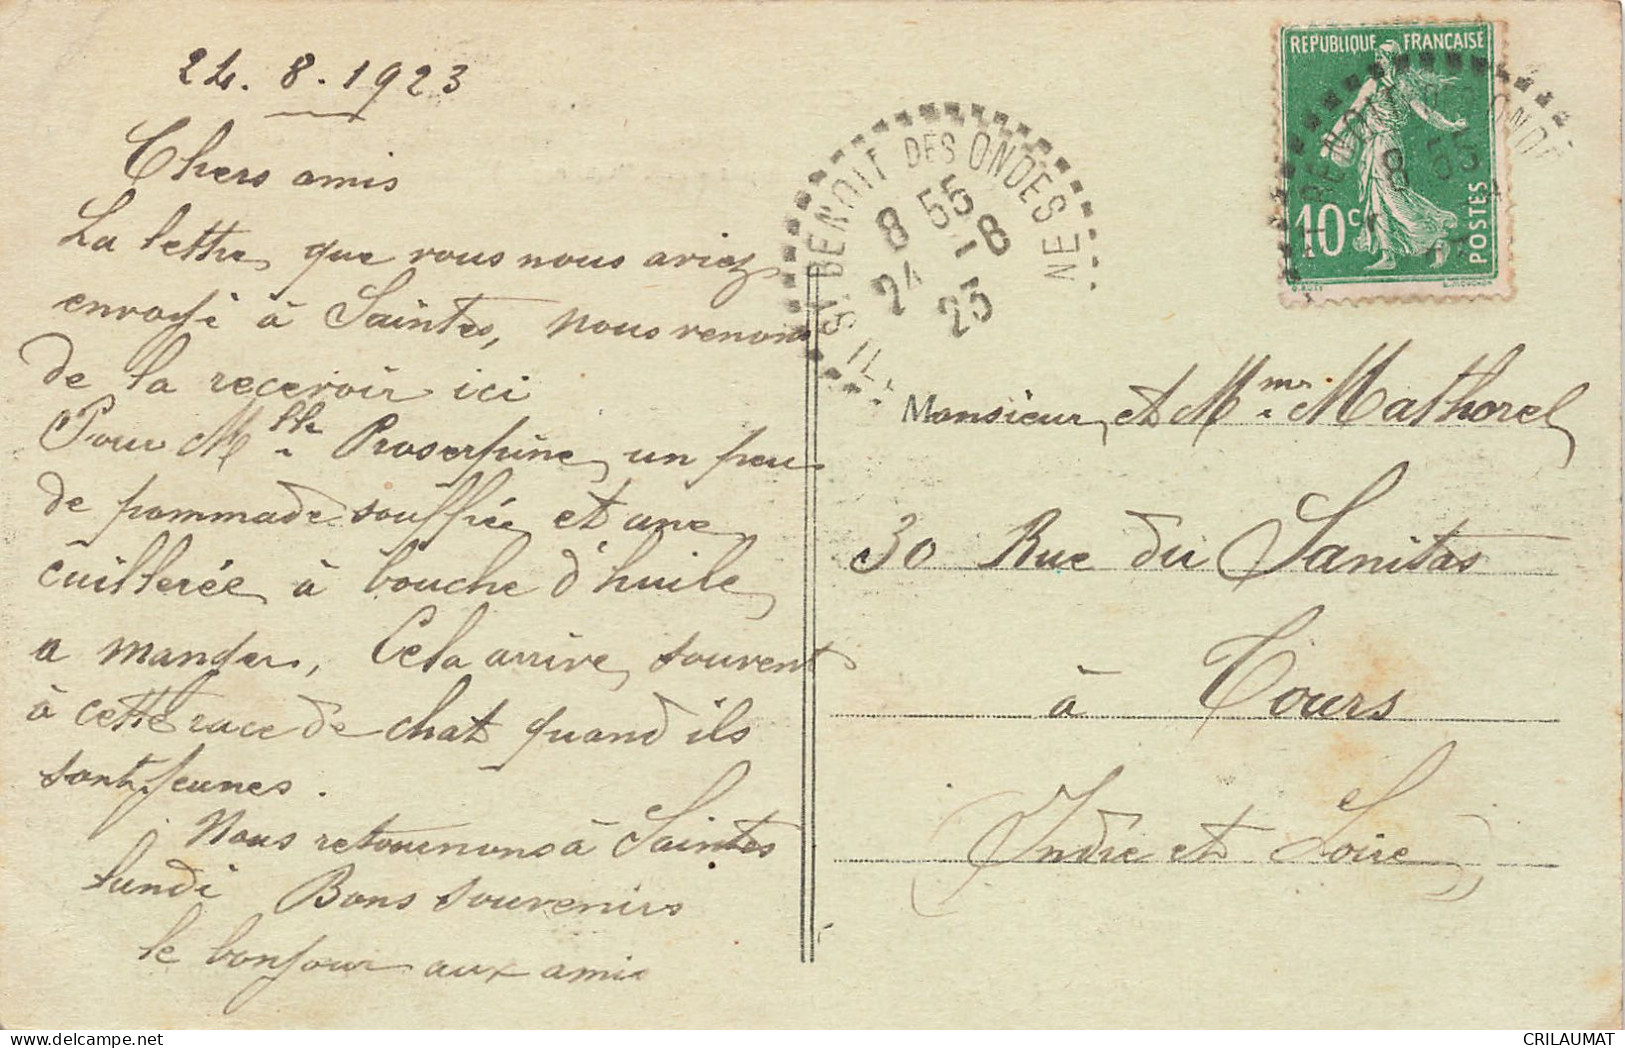 24.8.1923
Chers amis
La lettre que vous nous aviez
envoyé à Saintes, nous venons
de la recevoir ici
Pour Mlle Proserpine, un peu
de pommade souffrée et une
cuillerée à bouche d'huile
a manger, Cela arrive souvent
à cette race de chat quand ils
sont jeunes.
Nous retournons à Saintes
lundi Bons souvenirs
le bonjour aux amis
ST BENOIT DES ONDES
ILLE
NE
8 55
24 -8
23
REPUBLIQUE FRANÇAISE
10c
POSTES
BENOIT
ONDE
8 55
Monsieur et Mme Mathorel
30 Rue du Sanitas
à Tours
Indre et Loire
CRILAUMAT